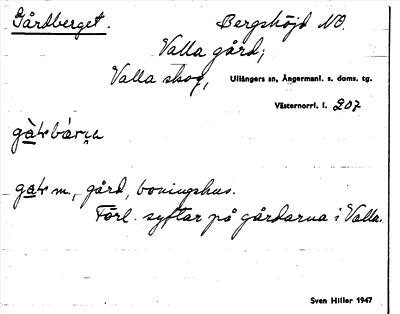 Gårdberget. Bergshöjd NO.
Valla gård;
Valla skog, Ullångers sn, Ångermanl. s. doms. tg.
Västernorrl. l. 207
gard m., gård, boningshus.
Förl. syftar på gårdarna i Valla.
Sven Hiller 1947